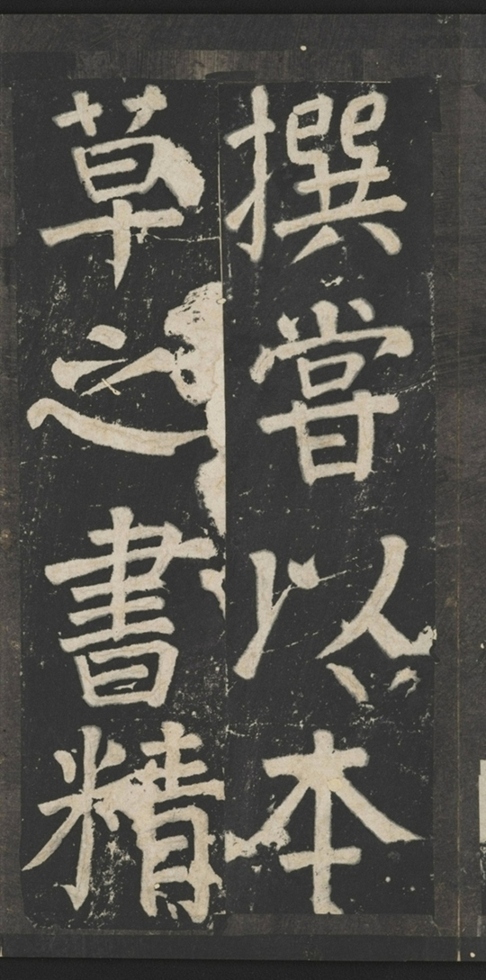 撰嘗以本
草之書精